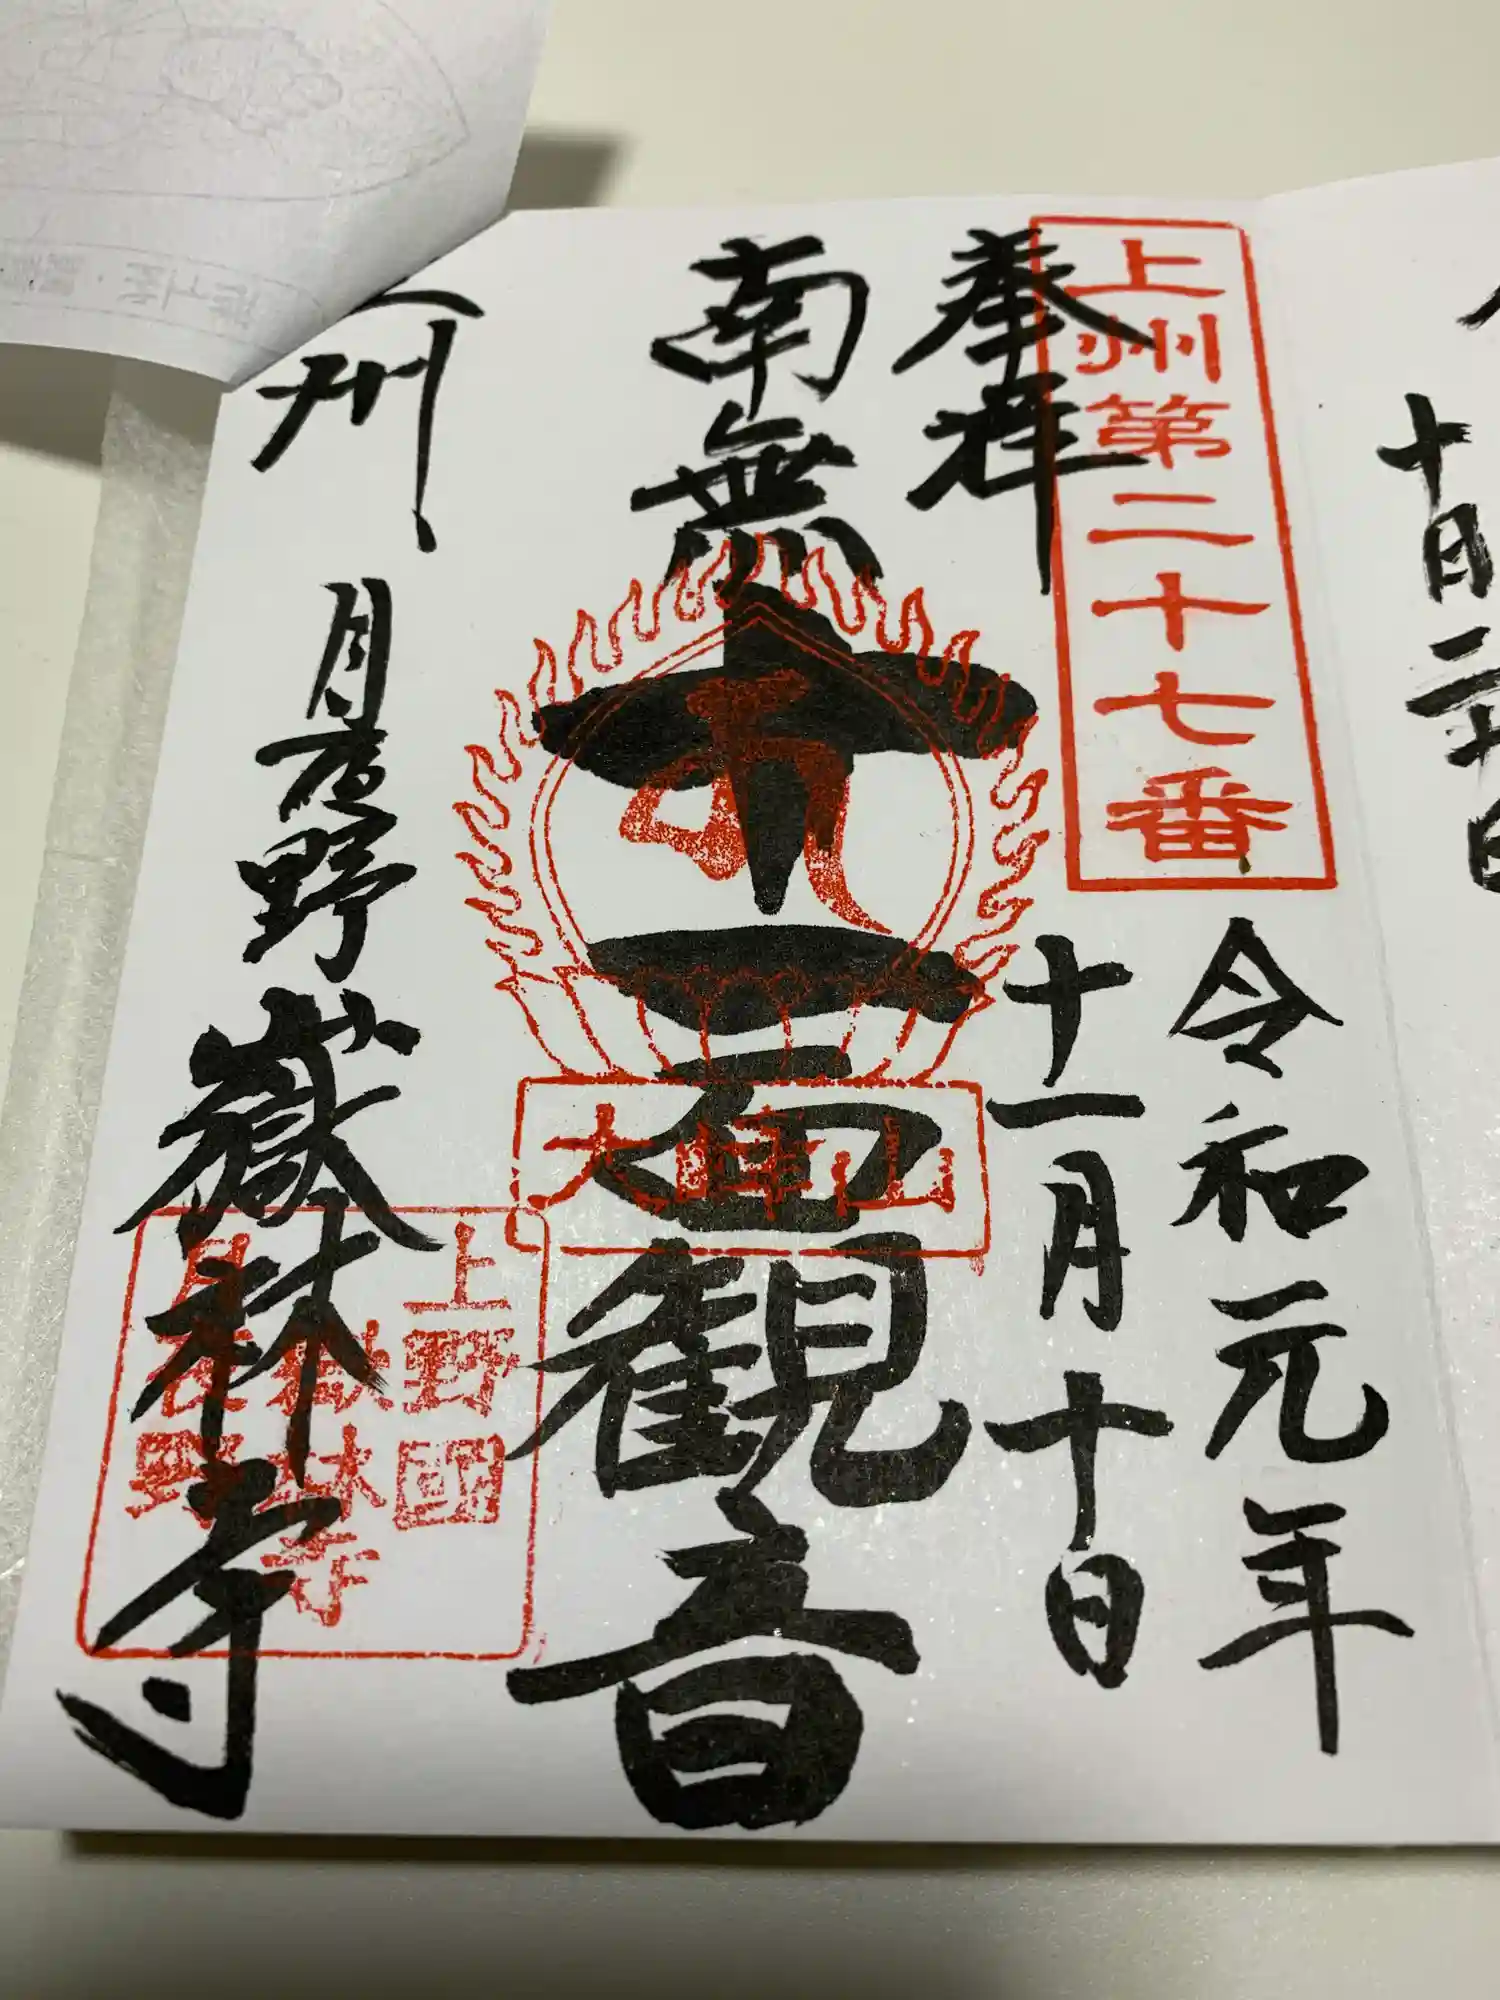 上州第二十七番
奉拝
令和元年
十一月十日
南無
十一面観音
大峰山
上州
月夜野
嶽林寺
上野國
嶽林寺
月夜野
十月二十
日